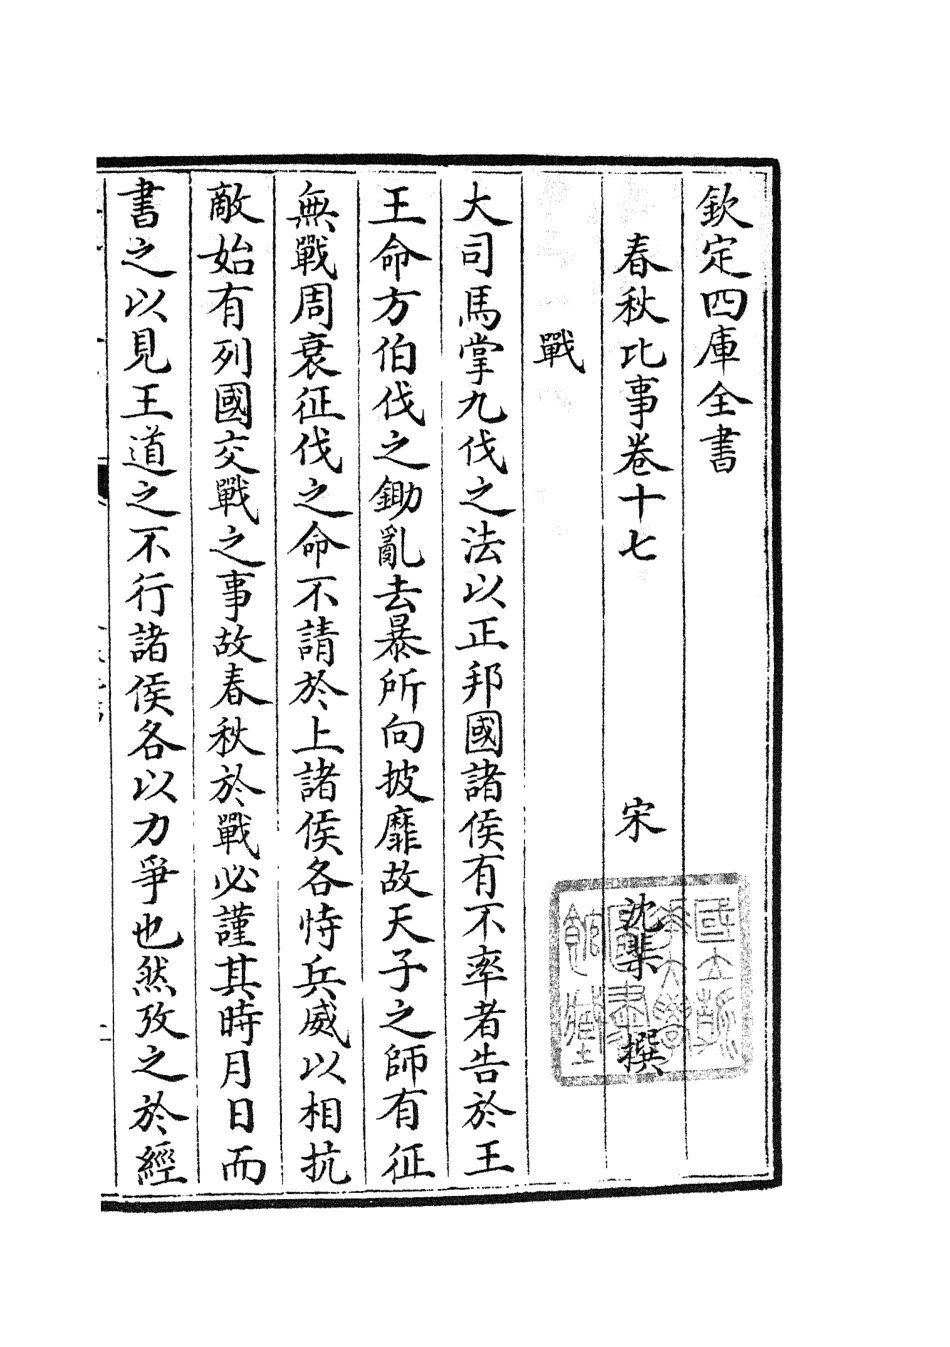 欽定四庫全書
春秋比事卷十七　宋　沈棐　撰
戰
大司馬掌九伐之法以正邦國諸侯有不率者告於王
王命方伯伐之鋤亂去暴所向披靡故天子之師有征
無戰周衰征伐之命不請於上諸侯各恃兵威以相抗
敵始有列國交戰之事故春秋於戰必謹其時月日而
書之以見王道之不行諸侯各以力爭也然攷之於經